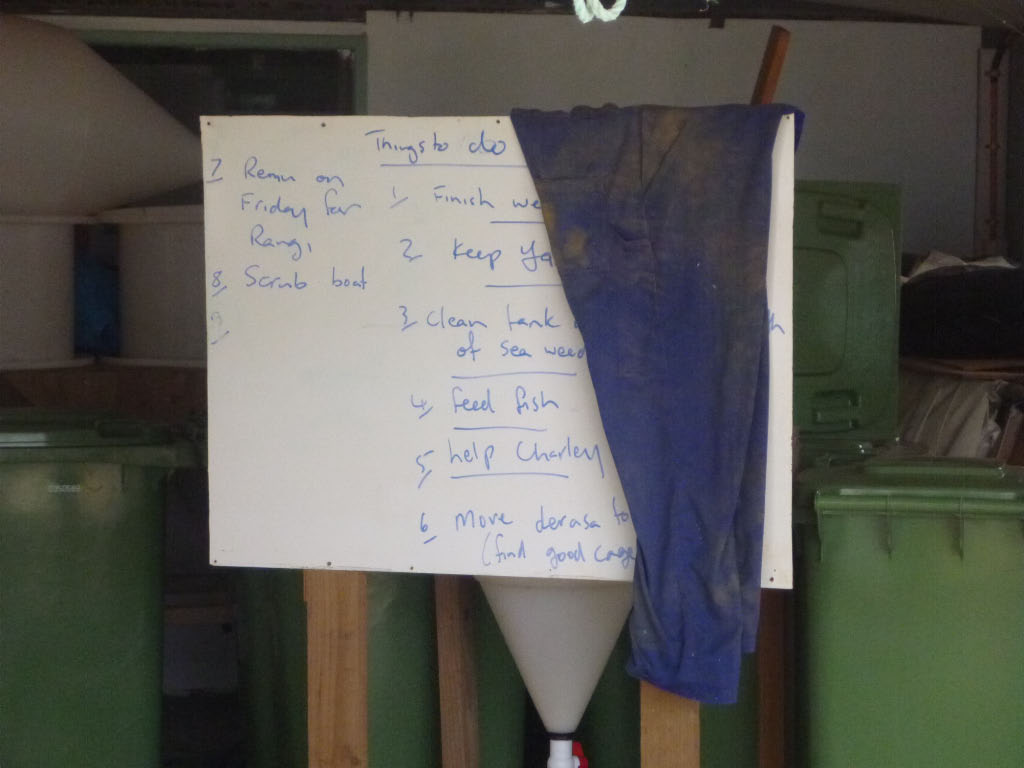 Things to do
1, Finish we
2, Keep Ya
3, Clean tank
of sea weed
4, feed fish
5, help Charley
6, Move derasa to
(find good cage
7, on
Friday for
8, Scrub boat
9,